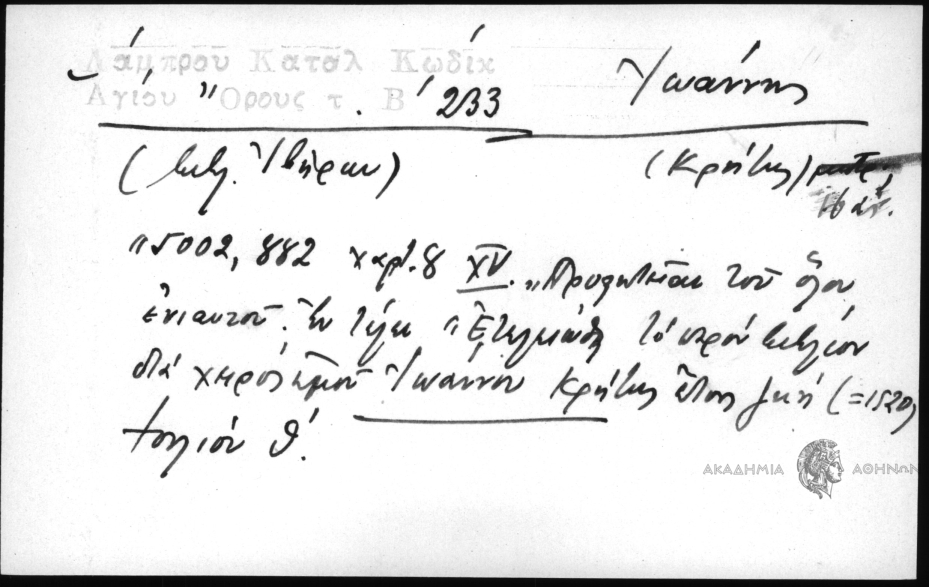 Λάμπρου Κατάλ Κωδίκ
Αγίου Ὄρους τ. Β΄ 233
Ἰωάννης
(βιβλ. Ἰβήρων)
(Κρήτης)
16 αἰ.
"5002, 882 χαρτ. 8 XV. "Προφητεῖαι τοῦ ὅλου
ἐνιαυτοῦ. Ἐν τέλει "Ἐτελειώθη τὸ παρόν βιβλίον
διὰ χειρὸς ἐμοῦ Ἰωάννου Κρήτης ἔτους ζκη (=1520)
Ἰουλίου θ΄.
ΑΚΑΔΗΜΙΑ ΑΘΗΝΩΝ